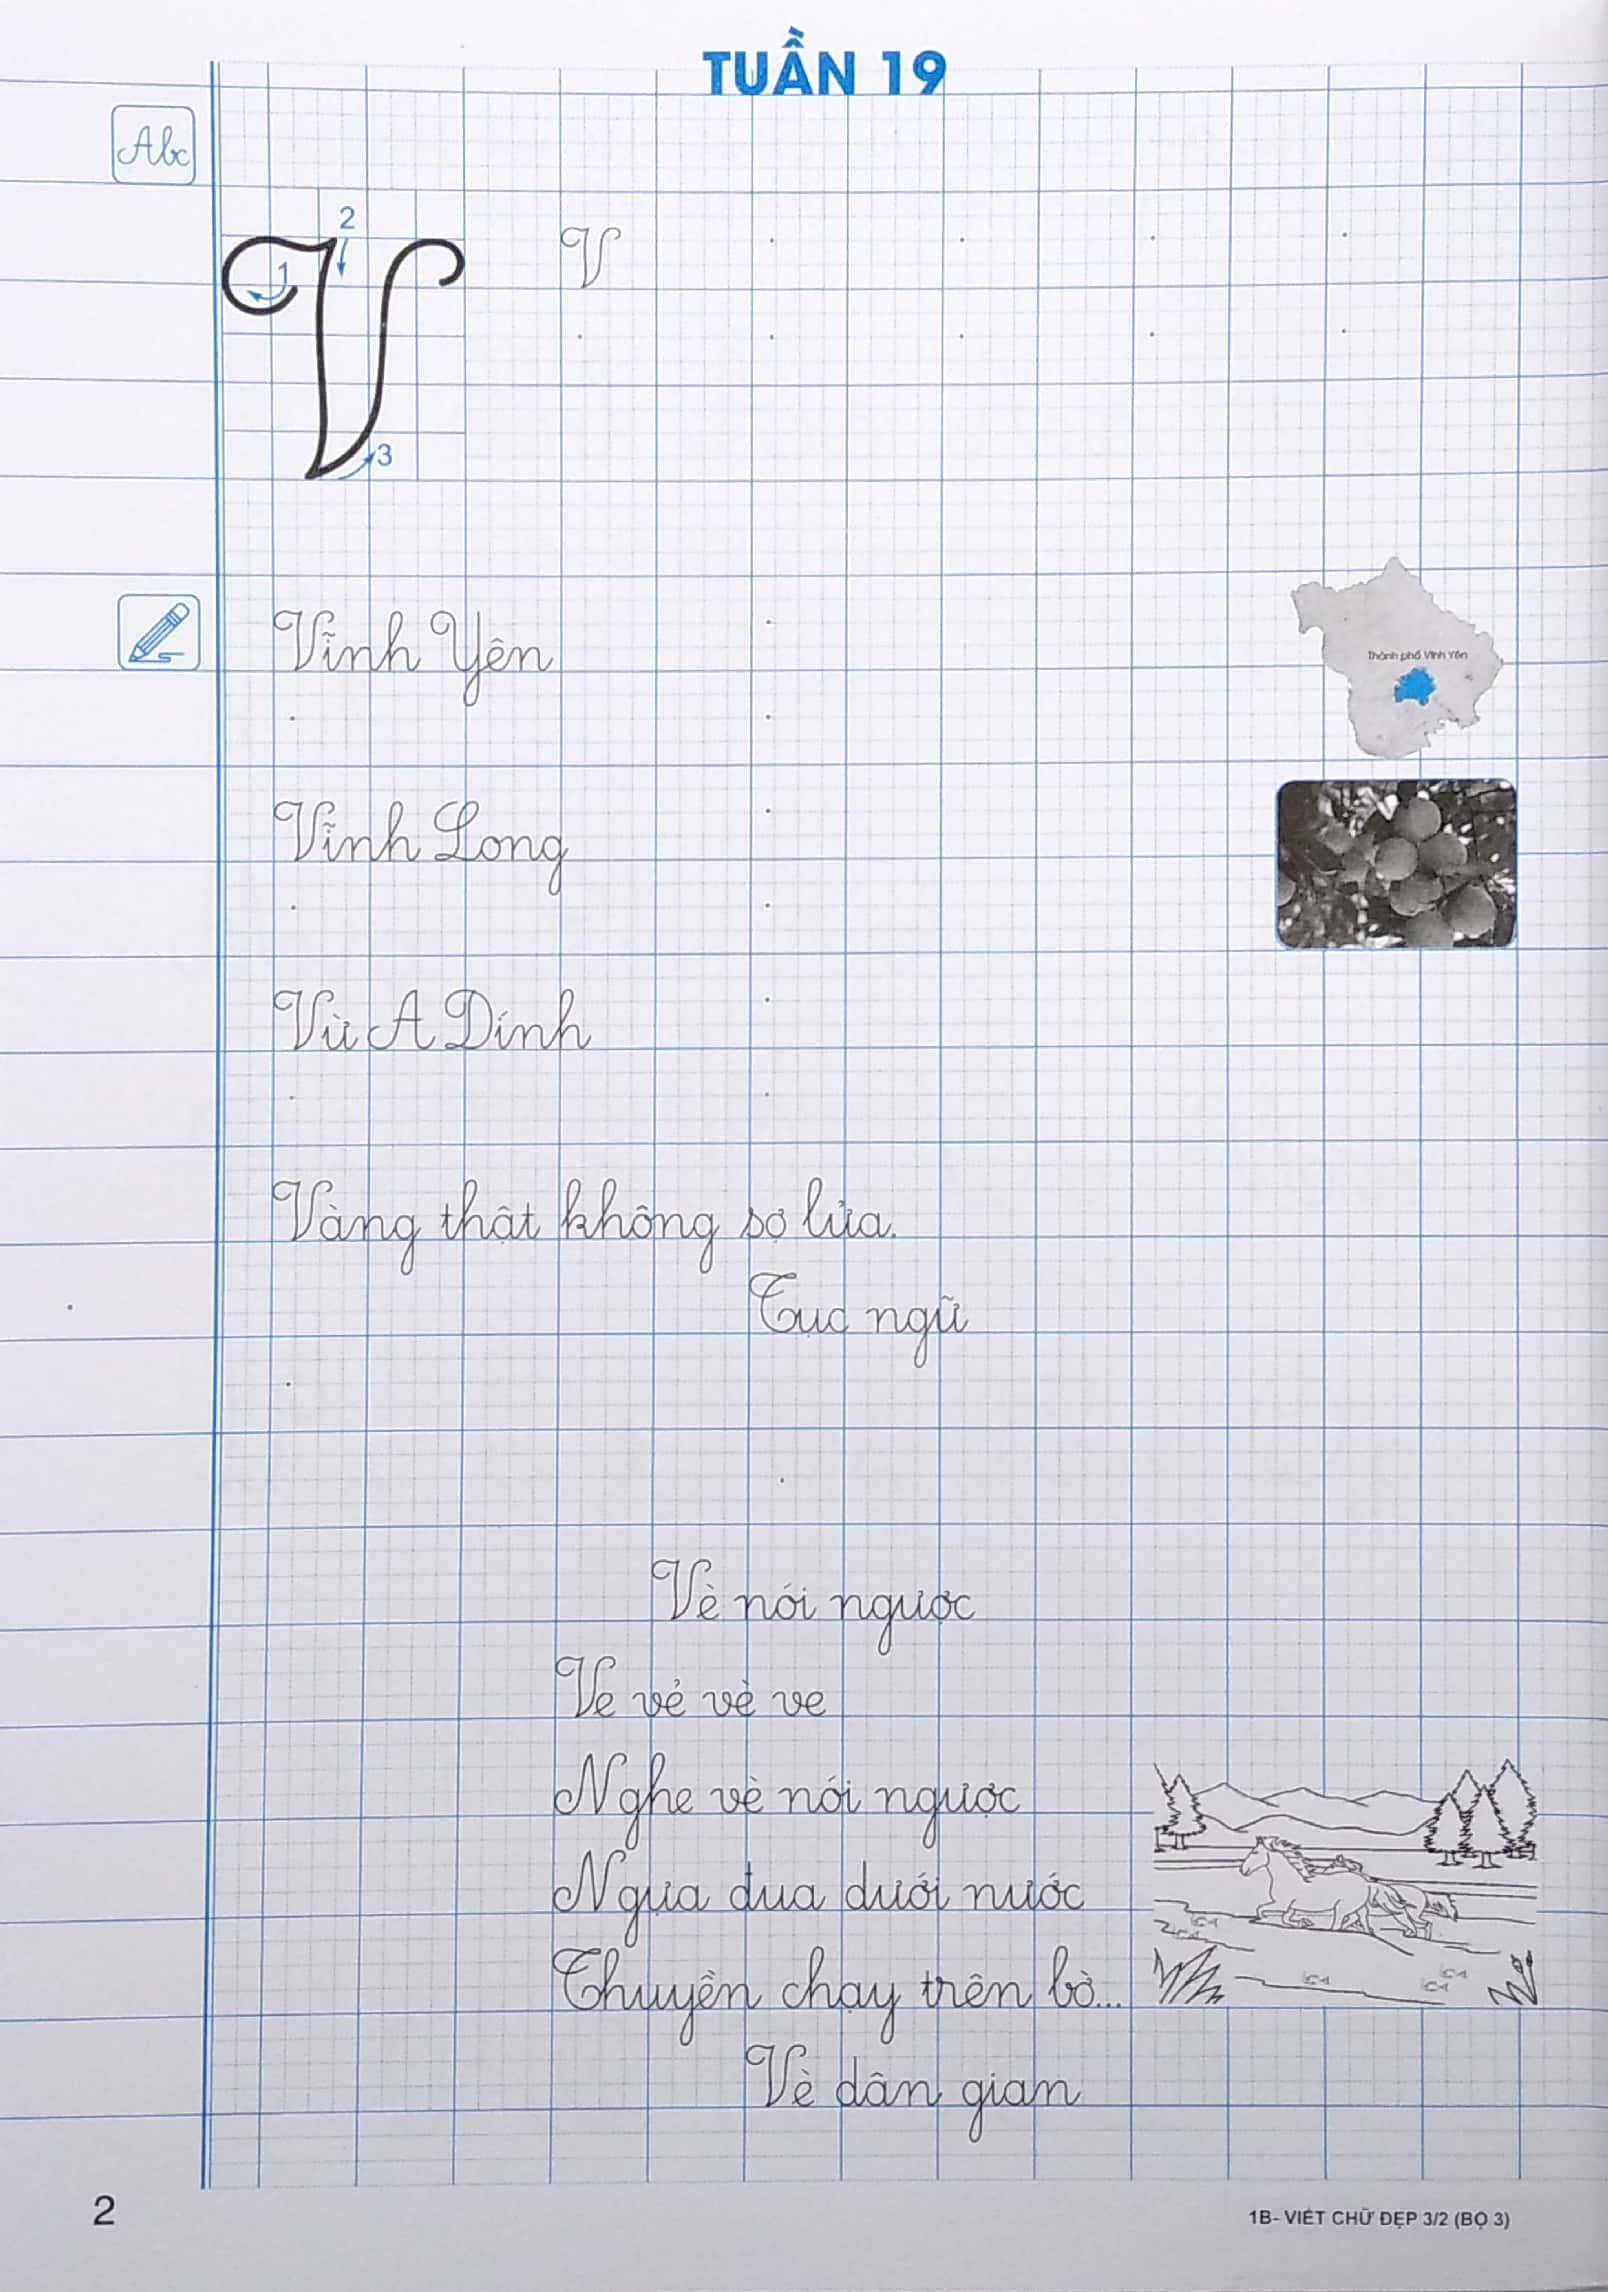 TUẦN 19
Abc
2
1
3
V
Vĩnh Yên
Thành phố Vĩnh Yên
Vĩnh Long
Vừ A Dính
Vàng thật không sợ lửa.
Tục ngữ
Vè nói ngược
Ve vẻ vè ve
Nghe vè nói ngược
Ngựa đua dưới nước
Thuyền chạy trên bờ...
Vè dân gian
2
1B- VIẾT CHỮ ĐẸP 3/2 (BỘ 3)